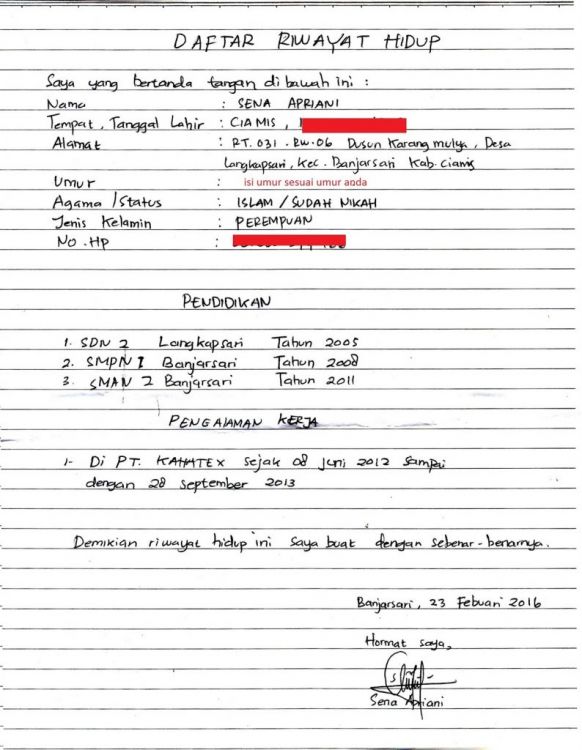 DAFTAR RIWAYAT HIDUP
Saya yang bertanda tangan di bawah ini :
Nama : SENA APRIANI
Tempat, Tanggal Lahir : CIAMIS,
Alamat : RT.031 . RW.06 Dusun Karang mulya, Desa
Langkapsari, Kec. Banjarsari Kab. Ciamis
Umur : isi umur sesuai umur anda
Agama / Status : ISLAM / SUDAH NIKAH
Jenis Kelamin : PEREMPUAN
No. Hp :
PENDIDIKAN
1. SDN 2 Langkapsari Tahun 2005
2. SMPN 1 Banjarsari Tahun 2008
3. SMAN 2 Banjarsari Tahun 2011
PENGALAMAN KERJA
1- Di PT. KAHATEX sejak 08 Juni 2012 sampai
dengan 28 september 2013
Demikian riwayat hidup ini saya buat dengan sebenar-benarnya.
Banjarsari, 23 Febuari 2016
Hormat saya,
Sena Apriani